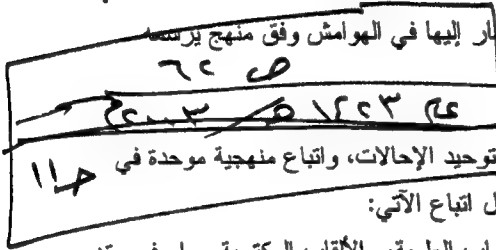 ار إليها في الهوامش وفق منهج يرسمه
ص ٦٢
عام ١٤٢٣ هـ / ٢٠٠٣ م
توحيد الإحالات، واتباع منهجية موحدة في ص ١١
ل اتباع الآتي: